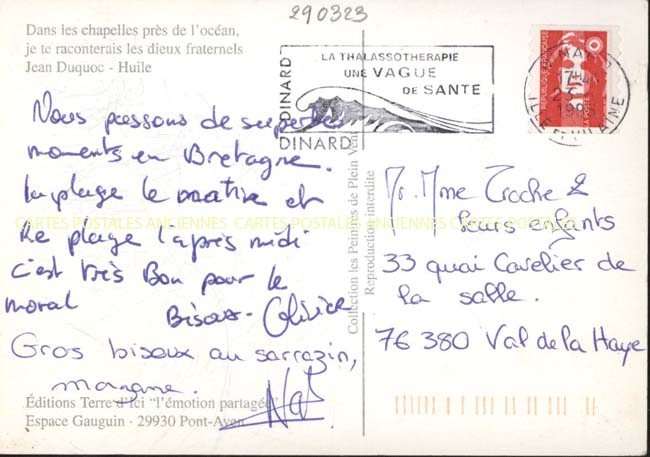 290323
Dans les chapelles près de l'océan,
je te raconterais les dieux fraternels
Jean Duquoc - Huile
DINARD
LA THALASSOTHERAPIE
UNE VAGUE
DE SANTE
DINARD
REPUBLIQUE FRANÇAISE
LA POSTE
DINARD
17H
ILLE ET VILAINE
Nous passons de superbes
moments en Bretagne.
la plage le matin et
Re plage l'après midi
c'est très Bon pour le
moral
Bisous - Olivier
Gros bisoux au sarrazin,
CARTES POSTALES ANCIENNES CARTES POSTALES ANCIENNES CARTES POSTALES ANCIENNES
Collection les Peintres de Plein Vent
Reproduction interdite
Mr. Mme Troche &
leurs enfants
33 quai Cavelier de
la salle.
76 380 Val de la Haye
Éditions Terre d'Ici "l'émotion partagée"
Espace Gauguin - 29930 Pont-Aven